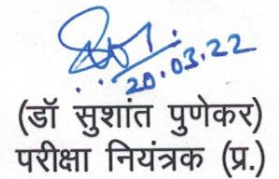 20.03.22
(डॉ सुशांत पुणेकर)
परीक्षा नियंत्रक (प्र.)